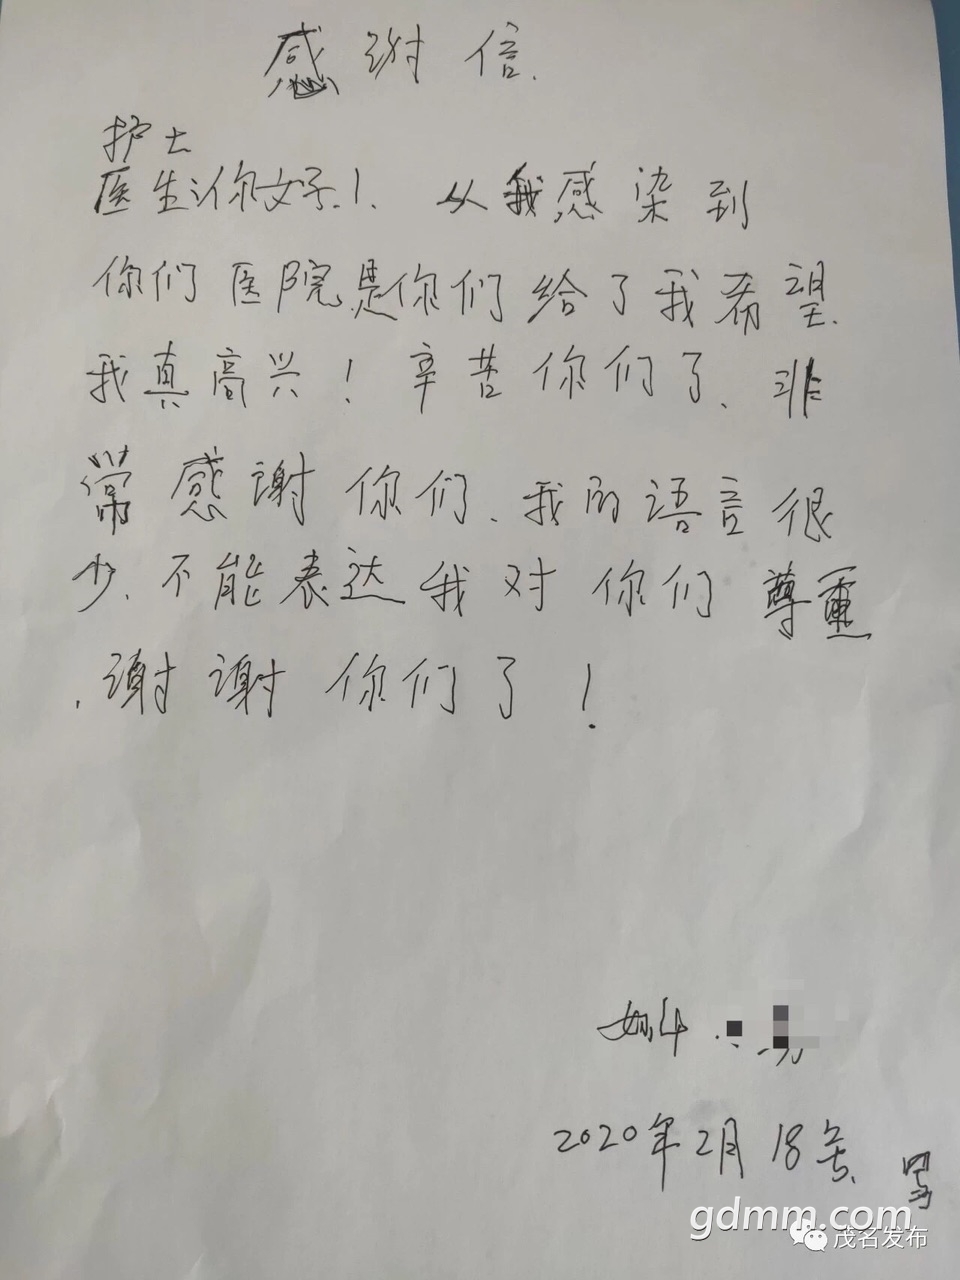 感谢信.
护士
医生:你好.!. 从我感染到
你们医院.是你们给了我希望.
我真高兴! 辛苦你们了. 非
常感谢你们. 我的语言很
少.不能表达我对你们尊重
.谢谢你们了!
2020年2月18号.
写
gdmm.com
茂名发布